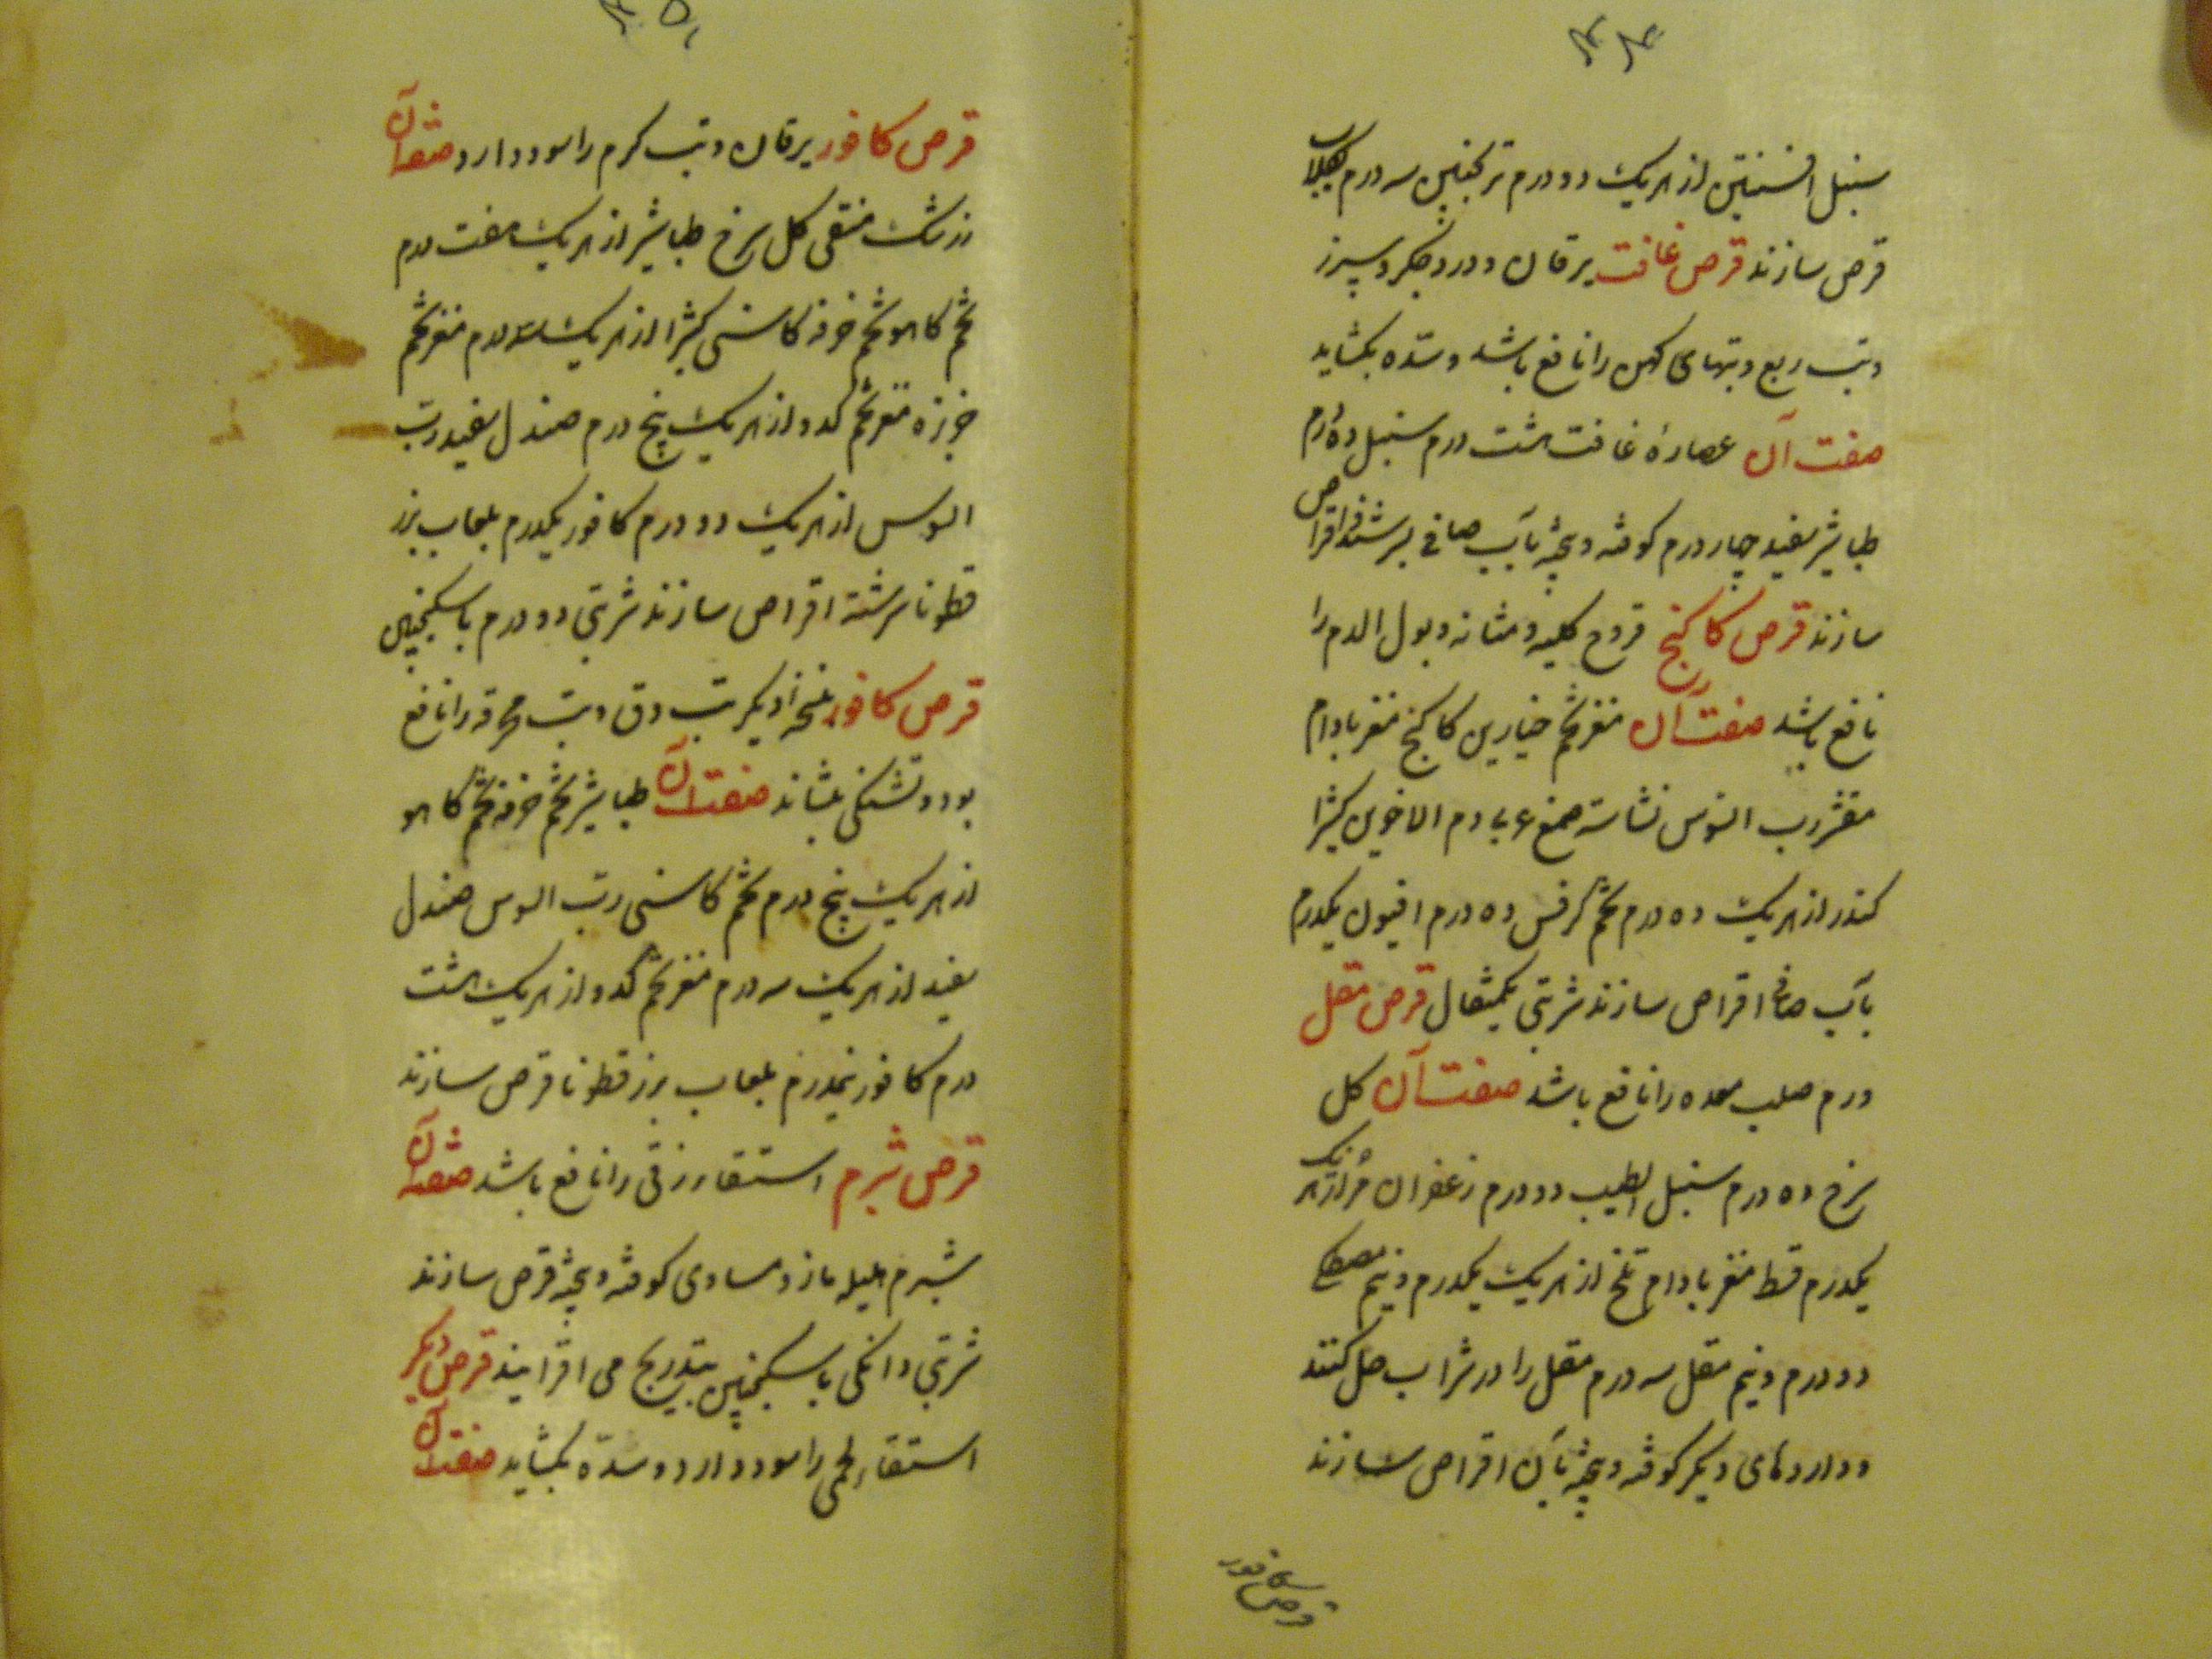 ۴۴
سنبل افسنتین از هریک دو درم ترنجبین سه درم بجلاب
قرص سازند قرص غافت یرقان و درد جگر و سپرز
و تب ربع و تبهای کهن را نافع باشد و سده بکشاید
صفت آن عصارۀ غافت هشت درم سنبل ده درم
طباشیر سفید چهار درم کوفته و بیخته بآب صافی بسرشند و اقراص
سازند قرص کاکنج قروح کلیه و مثانه و بول الدم را
نافع باشد صفت آن مغز تخم خیارین کاکنج مغز بادام
مقشر رب السوس نشاسته صمغ عربی دم الاخوین کتیرا
کندر از هریک ده درم تخم کرفس ده درم افیون یکدرم
بآب صافی اقراص سازند شربتی یکمثقال قرص مقل
ورم صلب معده را نافع باشد صفت آن کل
سرخ ده درم سنبل الطیب دو درم زعفران مر از هریک
یکدرم قسط مغز بادام تلخ از هریک یکدرم و نیم مصطکی
دو درم و نیم مقل سه درم مقل را در شراب حل کنند
و داروهای دیکر کوفته و بیخته بآن اقراص سازند
قرص کافور
۴۵
قرص کافور یرقان و تب کرم را سود دارد صفت آن
زرشک منقی کل سرخ طباشیر از هریک هفت درم
تخم کاهو تخم خرفه کاسنی کتیرا از هریک سه درم مغز تخم
خرپزه مغز تخم کدو از هریک پنج درم صندل سفید رب
السوس از هریک دو درم کافور یکدرم بلعاب بزر
قطونا سرشته اقراص سازند شربتی دو درم با سکنجبین
قرص کافور نسخه دیکر تب دق و تب محرقه را نافع
بود و تشنکی بنشاند صفت آن طباشیر تخم خرفه تخم کاهو
از هریک پنج درم تخم کاسنی رب السوس صندل
سفید از هریک سه درم مغز تخم کدو از هریک هشت
درم کافور نیمدرم بلعاب بزرقطونا قرص سازند
قرص شبرم استسقاء زقی را نافع باشد صفت آن
شبرم هلیله مازو مساوی کوفته و بیخته قرص سازند
شربتی دانکی با سکنجبین بتدریج می افزایند قرص دیکر
استسقاء لحمی را سود دارد و سده بکشاید صفت آن